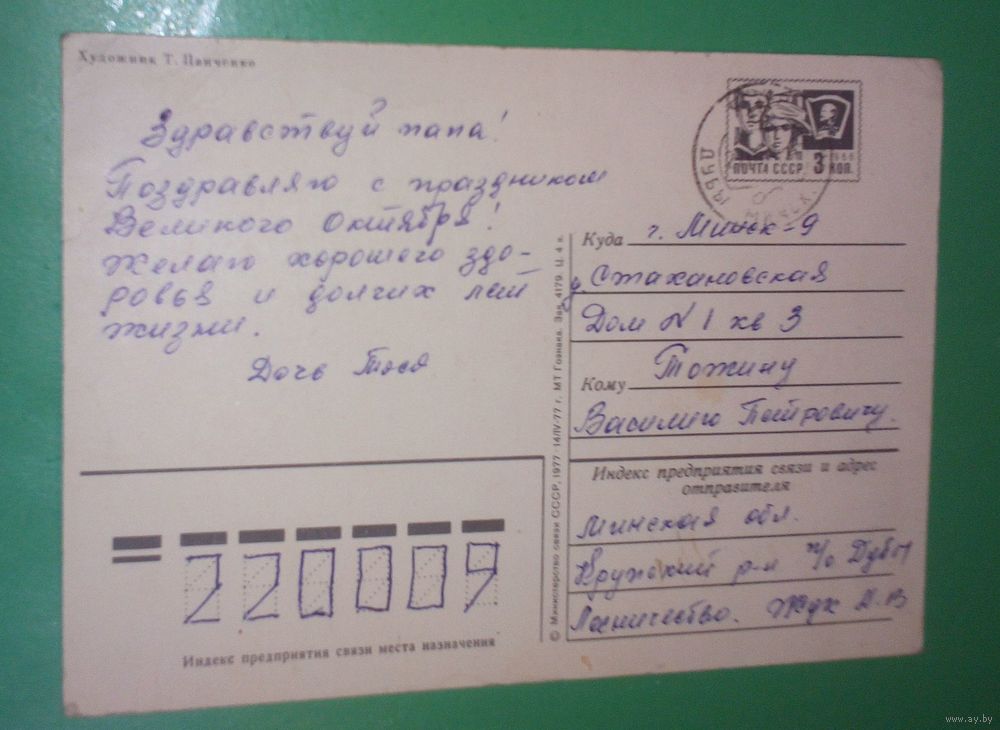 Художник Т. Панченко
Здравствуй папа!
Поздравляю с праздником
Великого Октября!
Желаю хорошего здо-
ровья и долгих лет
жизни.
Дочь Тося
ПОЧТА СССР 3 КОП.
МИНСК
Куда г. Минск-9
у Стахановская
Дом N 1 кв 3
Кому Тожину
Василию Петровичу.
Индекс предприятия связи и адрес
отправителя
Минская обл.
р-н п/о
Лесничество. Жук
© Министерство связи СССР, 1977. 14/IV-77 г. МТ Гознака. Зак. 4179. Ц. 4 к.
220009
Индекс предприятия связи места назначения
www.ay.by